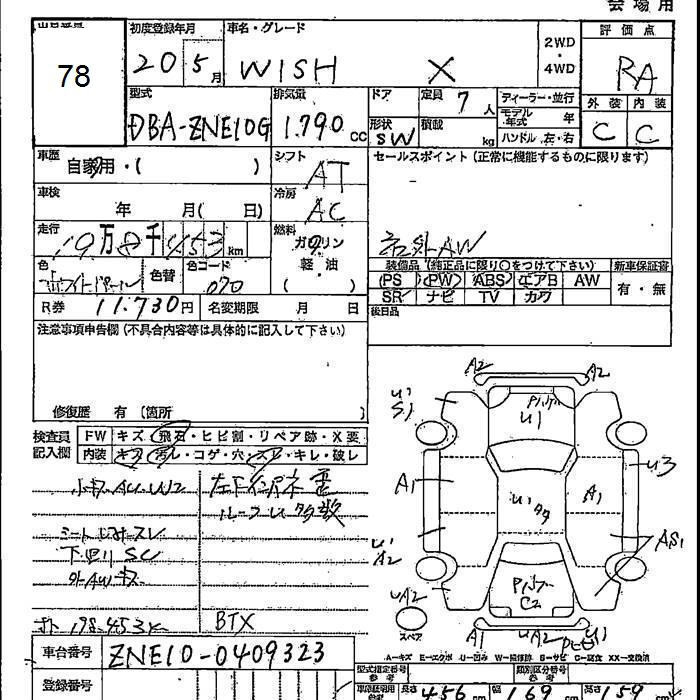 会場用
78
初度登録年月 車名・グレード 2WD・4WD 評価点
20 5月 WISH X RA
外装 内装
C C
型式 排気量 ドア 定員 7人 ディーラー・並行
DBA-ZNE10G 1.790cc 形状 SW 積載 kg モデル年式 年
ハンドル 左・右
車歴 自家用・( ) シフト AT セールスポイント(正常に機能するものに限ります)
車検 年 月( 日) 冷房 AC
走行 19万8千453km 燃料 ガソリン 軽・油 ( )
社外AW
色 ホワイトパール 色替 色コード 070
装備品(純正品に限り○をつけて下さい) 新車保証書
PS PW ABS エアB AW 有・無
SR ナビ TV カワ
R券 11.730円 名変期限 月 日 後日品
注意事項申告欄(不具合内容等は具体的に記入して下さい)
修復歴 有 (箇所 )
検査員記入欄 FW キズ・飛石・ヒビ割・リペア跡・X要
内装 キズ・汚レ・コゲ・穴・スレ・キレ・破レ
小キズ AU UI2
ルーフ U タ 数
シート スレ
下回リ SC
外AWキズ
198.453K
BTX
A2 A2
U1
S1
U1
U3
A1
A1
U1
A2
AS1
UA2
C2
スペア
A1 UA2 U1
A-キズ E-エクボ U-凹み W-補修跡 S-サビ C-腐食 XX-交換済
車台番号 ZNE10-0409323
型式指定番号 参考 類別区分番号 参考
登録番号
長さ 456cm 幅 169cm 高さ 159cm